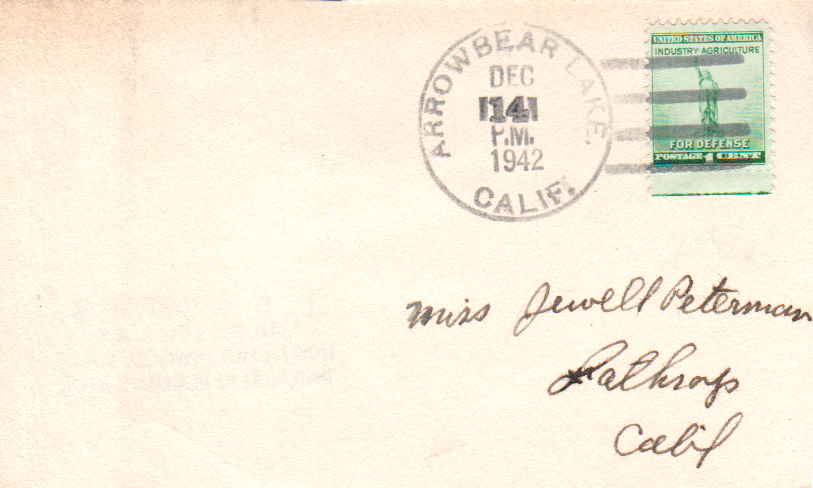 ARROWBEAR LAKE.
DEC
14
P.M.
1942
CALIF.
UNITED STATES OF AMERICA
INDUSTRY AGRICULTURE
FOR DEFENSE
POSTAGE 1 CENT
Miss Jewell Peterman
Lathrop
Calif